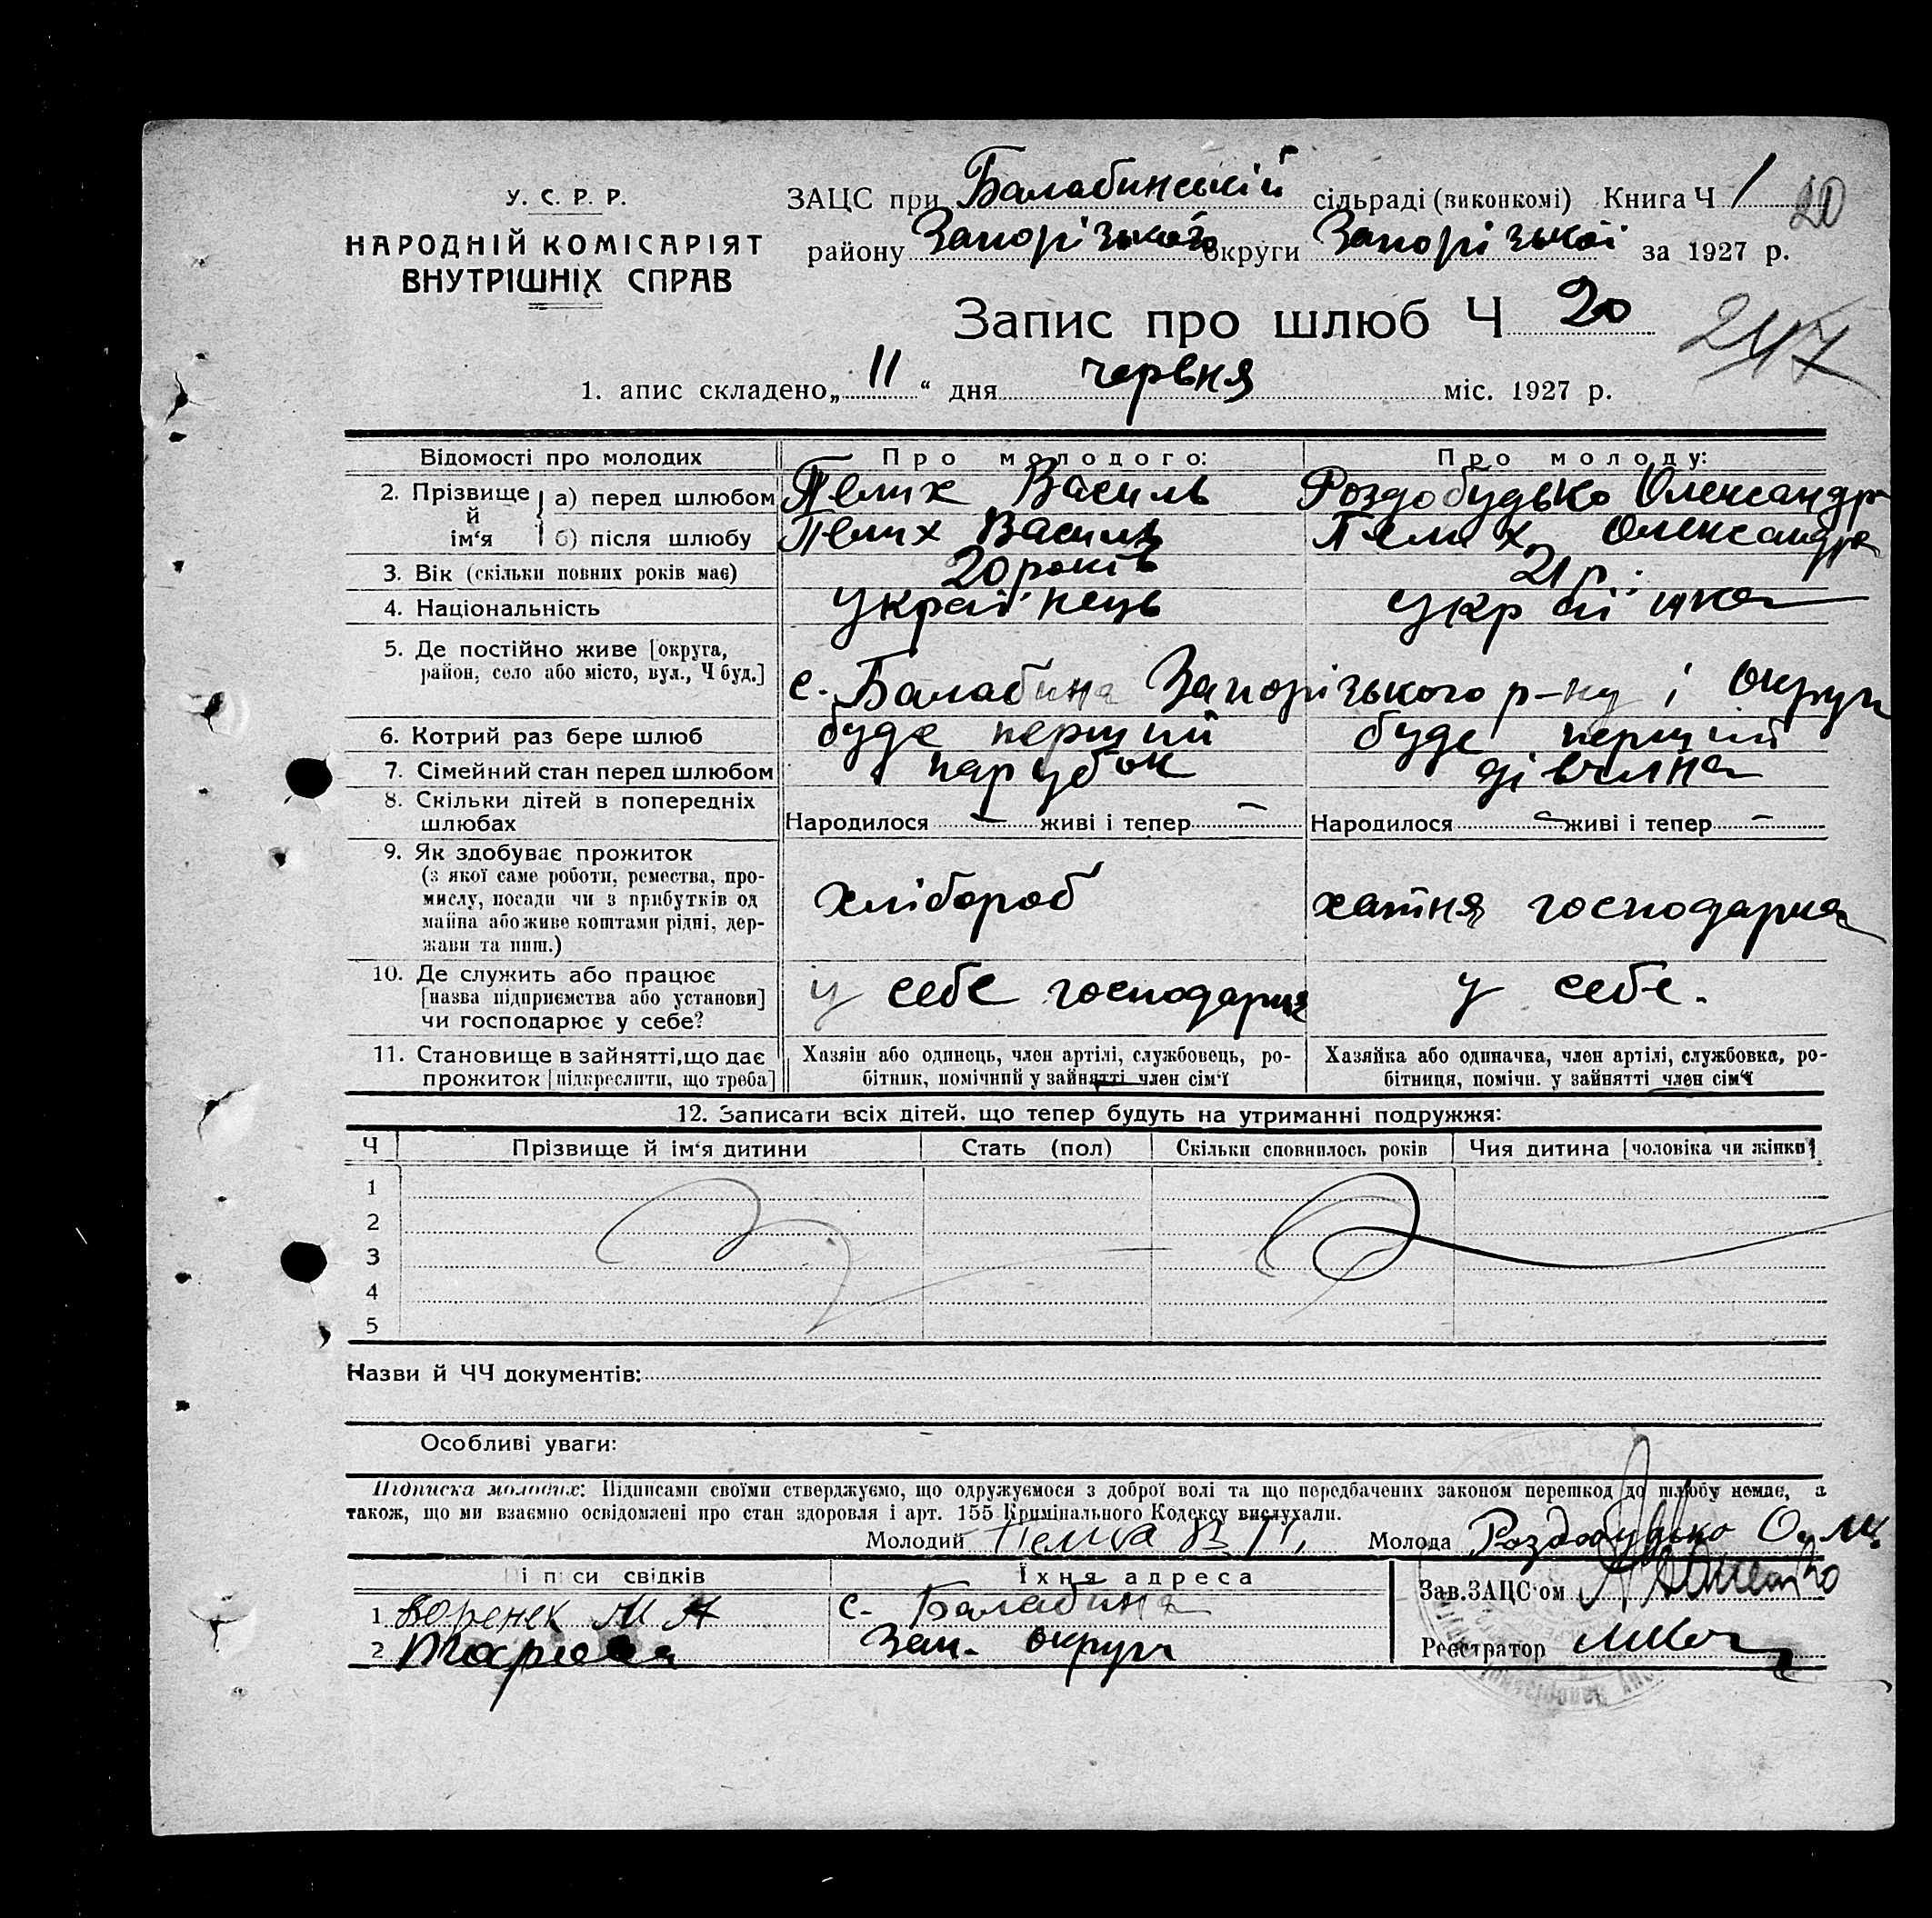 У. С. Р. Р.
НАРОДНІЙ КОМІСАРІЯТ
ВНУТРІШНІХ СПРАВ
ЗАЦС при Балабинській сільраді (виконкомі) Книга Ч 1
20
району Запорізького округи Запорізької за 1927 р.
Запис про шлюб Ч 20
247
1. апис складено „ 11 “ дня червня міс. 1927 р.
Відомості про молодих Про молодого: Про молоду:
2. Прізвище й ім‘я а) перед шлюбом Пелих Василь Роздобудько Олександра
б) після шлюбу Пелих Василь Пелих Олександра
3. Вік (скільки повних років має) 20 років 21 р.
4. Національність українець українка
5. Де постійно живе [округа,
район, село або місто, вул., Ч буд.] с. Балабина Запорізького р-ну і округи
6. Котрий раз бере шлюб буде перший буде перший
7. Сімейний стан перед шлюбом парубок дівчина
8. Скільки дітей в попередніх
шлюбах Народилося — живі і тепер — Народилося — живі і тепер —
9. Як здобуває прожиток
(з якої саме роботи, ремества, про-
мислу, посади чи з прибутків од
майна або живе коштами рідні, дер-
жави та инш.) хлібороб хатня господарка
10. Де служить або працює
[назва підприємства або установи]
чи господарює у себе? у себе господарює у себе.
11. Становище в зайнятті, що дає
прожиток [підкреслити, що треба]
Хазяін або одинець, член артілі, службовець, ро-
бітник, помічний у зайнятті член сім‘ї
Хазяйка або одиначка, член артілі, службовка, ро-
бітниця, помічн. у зайнятті член сім‘ї
12. Записати всіх дітей. що тепер будуть на утриманні подружжя:
Ч Прізвище й ім‘я дитини Стать (пол) Скільки сповнилось років Чия дитина [чоловіка чи жінки]
1
2
3
4
5
Назви й ЧЧ документів:
Особливі уваги:
Підписка молодих: Підписами своїми стверджуємо, що одружуємося з доброї волі та що передбачених законом перешкод до шлюбу немає, а
також, що ми взаємно освідомлені про стан здоровля і арт. 155 Кримінального Кодексу вислухали.
Молодий Молода Роздобудько
Підписи свідків Їхня адреса
Зав.ЗАЦС‘ом
1 М А с. Балабина
2 Зап. округи
Реєстратор